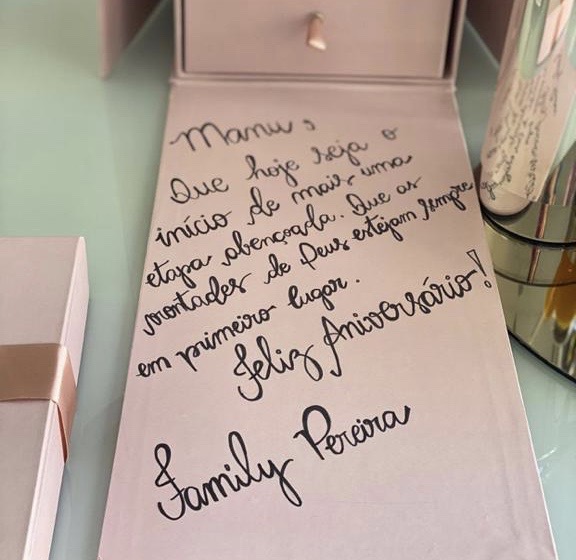 Manu,
Que hoje seja o
início de mais uma
etapa abençoada. Que as
vontades de Deus estejam sempre
em primeiro lugar.
Feliz Aniversário!
Family Pereira